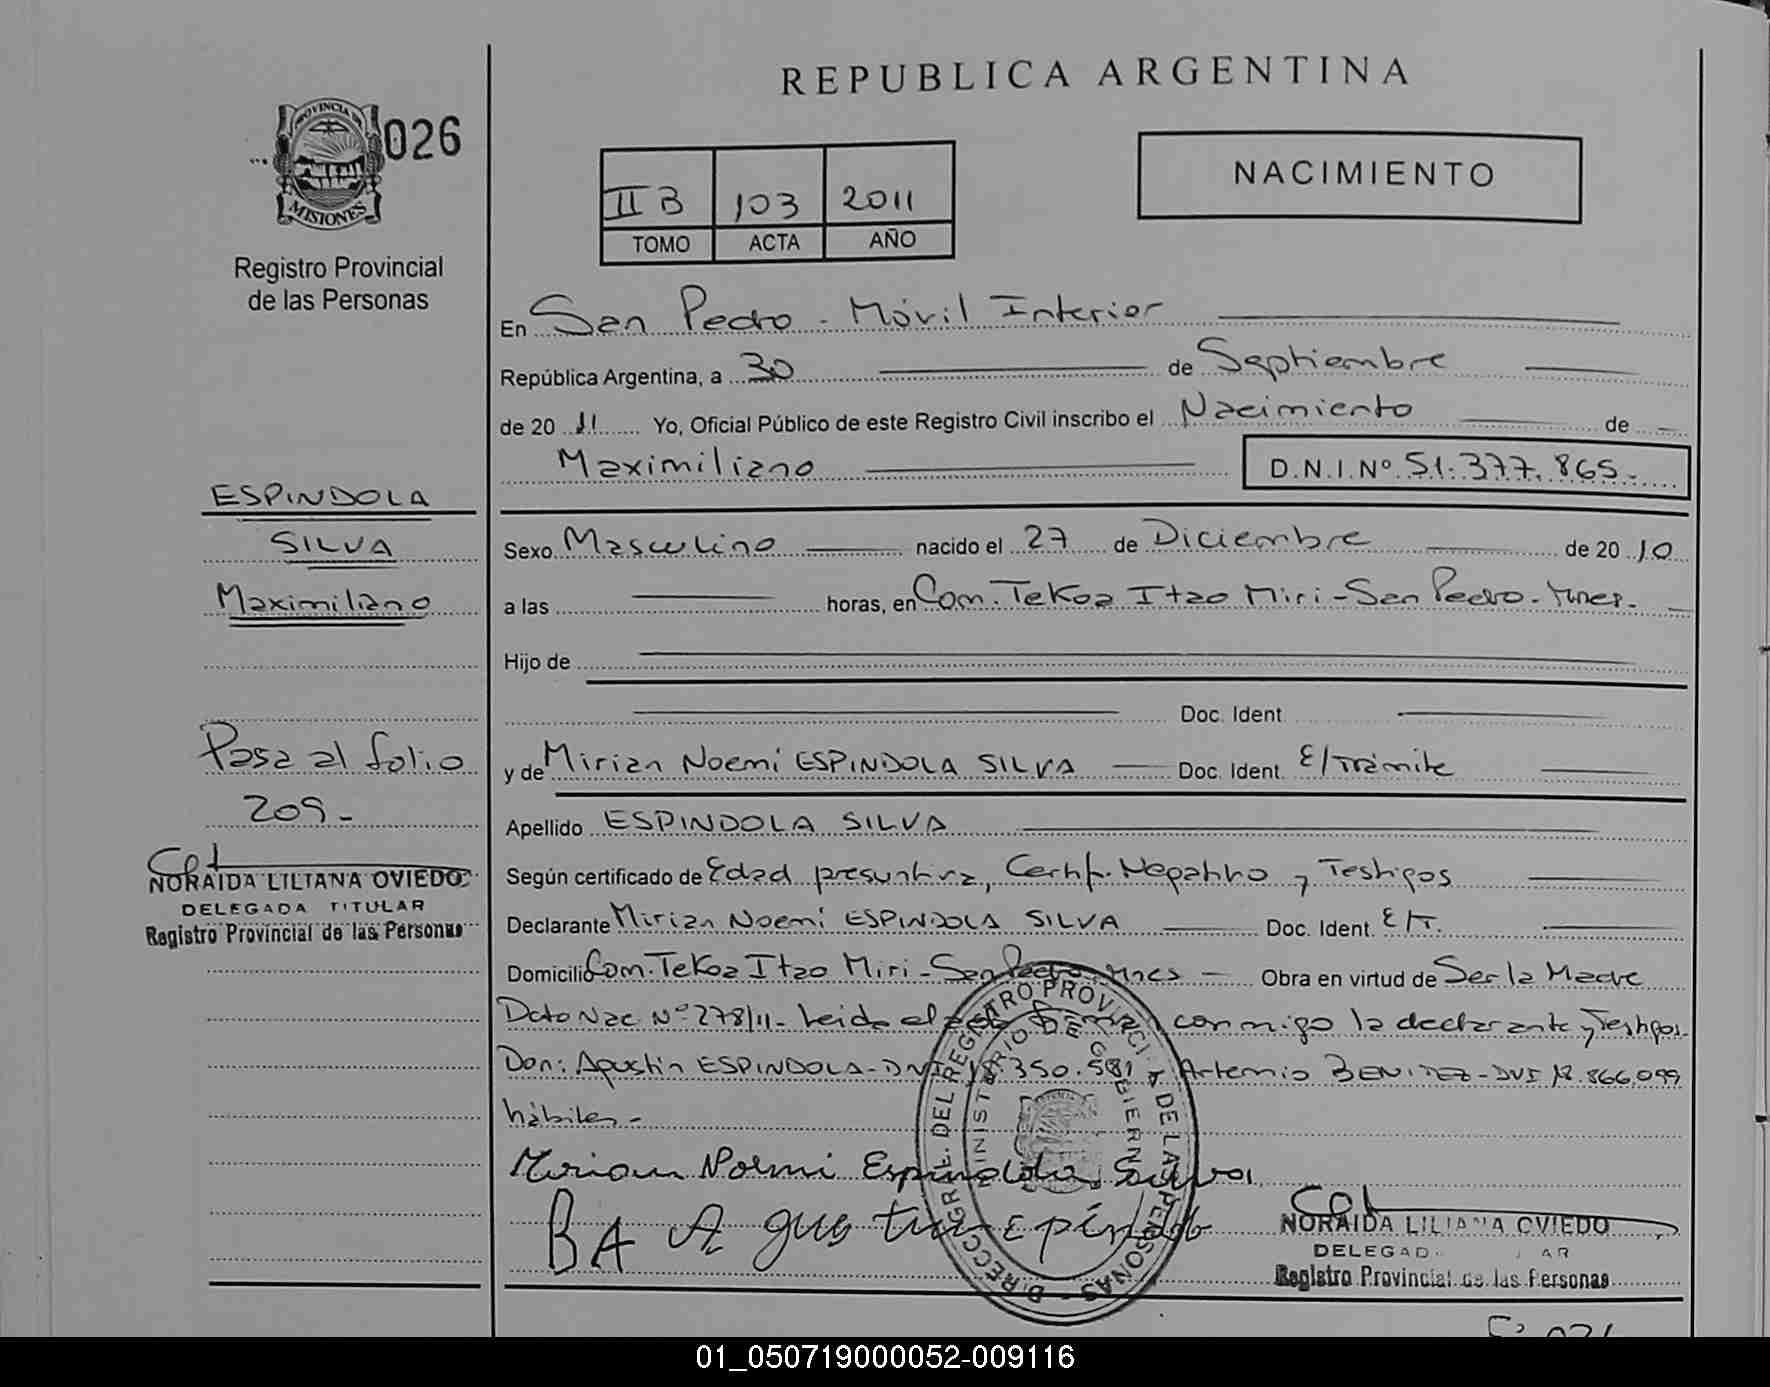 REPUBLICA ARGENTINA
026
PROVINCIA DE
MISIONES
Registro Provincial
de las Personas
II B 103 2011
TOMO ACTA AÑO
NACIMIENTO
En San Pedro - Móvil Interior
República Argentina, a 30 de Septiembre
de 20 11 Yo, Oficial Público de este Registro Civil inscribo el Nacimiento de
Maximiliano D.N.I. Nº 51.377.865.-
ESPINDOLA
SILVA
Maximiliano
Sexo Masculino nacido el 27 de Diciembre de 20 10
a las horas, en Com. Tekoa Itao Miri - San Pedro - Mnes.
Hijo de
Doc. Ident.
y de Mirian Noemí ESPINDOLA SILVA Doc. Ident. E/Trámite
Pasa al folio
209-
NORAIDA LILIANA OVIEDO
DELEGADA TITULAR
Registro Provincial de las Personas
Apellido ESPINDOLA SILVA
Según certificado de Edad presuntiva, Certif. Negativo y Testigos
Declarante Mirian Noemí ESPINDOLA SILVA Doc. Ident. E/T.
Domicilio Com. Tekoa Itao Miri - San Pedro - Mnes Obra en virtud de Ser la Madre
Dato Nac Nº 278/11 - Leida el acta conmigo la declarante y Testigos
Don: Agustín ESPINDOLA - DNI 350.581 Artemio BENITEZ - DNI 18.866.099
hábiles -
Miriam Noemi Espindola Silva
BA Agustin Epindo
DIRECC. GRAL. DEL REGISTRO PROVINCIAL DE LAS PERSONAS
MINISTERIO DE GOBIERNO
NORAIDA LILIANA OVIEDO
DELEGAD AR
Registro Provincial de las Personas
01_050719000052-009116